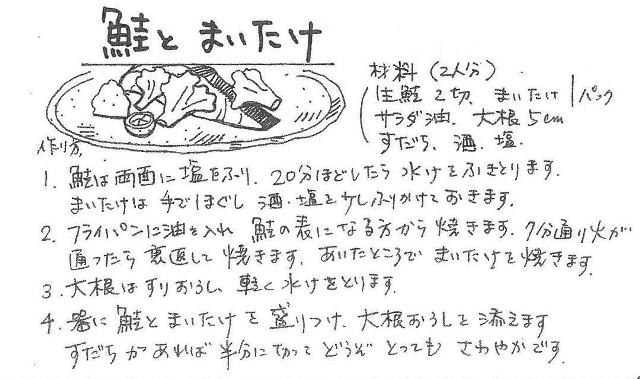 鮭と まいたけ
材料 (2人分)
生鮭 2切、まいたけ 1パック
サラダ油、大根 5cm
すだち、酒、塩、
作り方
1. 鮭は両面に塩をふり、20分ほどしたら水けをふきとります。
まいたけは手でほぐし 酒・塩を少しふりかけておきます。
2. フライパンに油を入れ 鮭の表になる方から焼きます。7分通り火が
通ったら裏返して焼きます。あいたところで まいたけを焼きます。
3. 大根はすりおろし、軽く水けをとります。
4. 器に鮭とまいたけを盛りつけ、大根おろしを添えます
すだちがあれば半分に切って どうぞ とっても さわやかです。